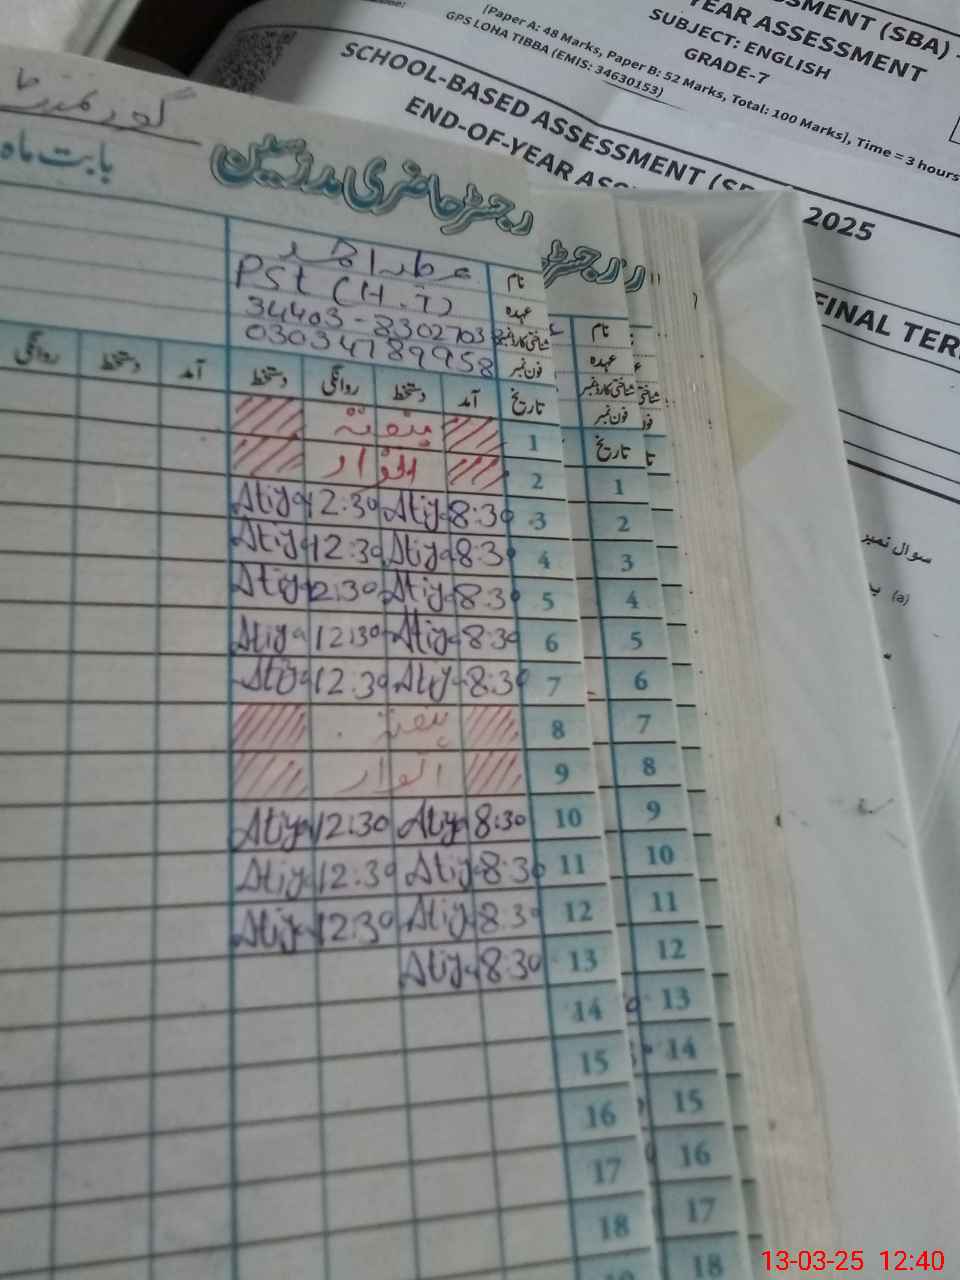 SSMENT (SBA) -
YEAR ASSESSMENT
SUBJECT: ENGLISH
GRADE-7
[Paper A: 48 Marks, Paper B: 52 Marks, Total: 100 Marks], Time = 3 hours
GPS LOHA TIBBA (EMIS: 34630153)
SCHOOL-BASED ASSESSMENT (S
END-OF-YEAR ASS
2025
FINAL TER
سوال نمبر
(a)
رجسٹر حاضری مدرسین
بابت ماہ
نام
PST (H.T)
عہدہ
34403-8302703
شناختی کارڈ نمبر
03034789958
فون نمبر
تاریخ آمد دستخط روانگی دستخط آمد دستخط روانگی
1 ہفتہ
2 اتوار
3 8:30 Atiya 12:30 Atiya
4 8:30 Atiya 12:30 Atiya
5 8:30 Atiya 12:30 Atiya
6 8:30 Atiya 12:30 Atiya
7 8:30 Atiya 12:30 Atiya
8 ہفتہ
9 اتوار
10 8:30 Atiya 12:30 Atiya
11 8:30 Atiya 12:30 Atiya
12 8:30 Atiya 12:30 Atiya
13 8:30 Atiya
14
15
16
17
18
19
رجسٹر
نام
عہدہ
شناختی کارڈ نمبر
فون نمبر
تاریخ
1
2
3
4
5
6
7
8
9
10
11
12
13
14
15
16
17
18
13-03-25 12:40